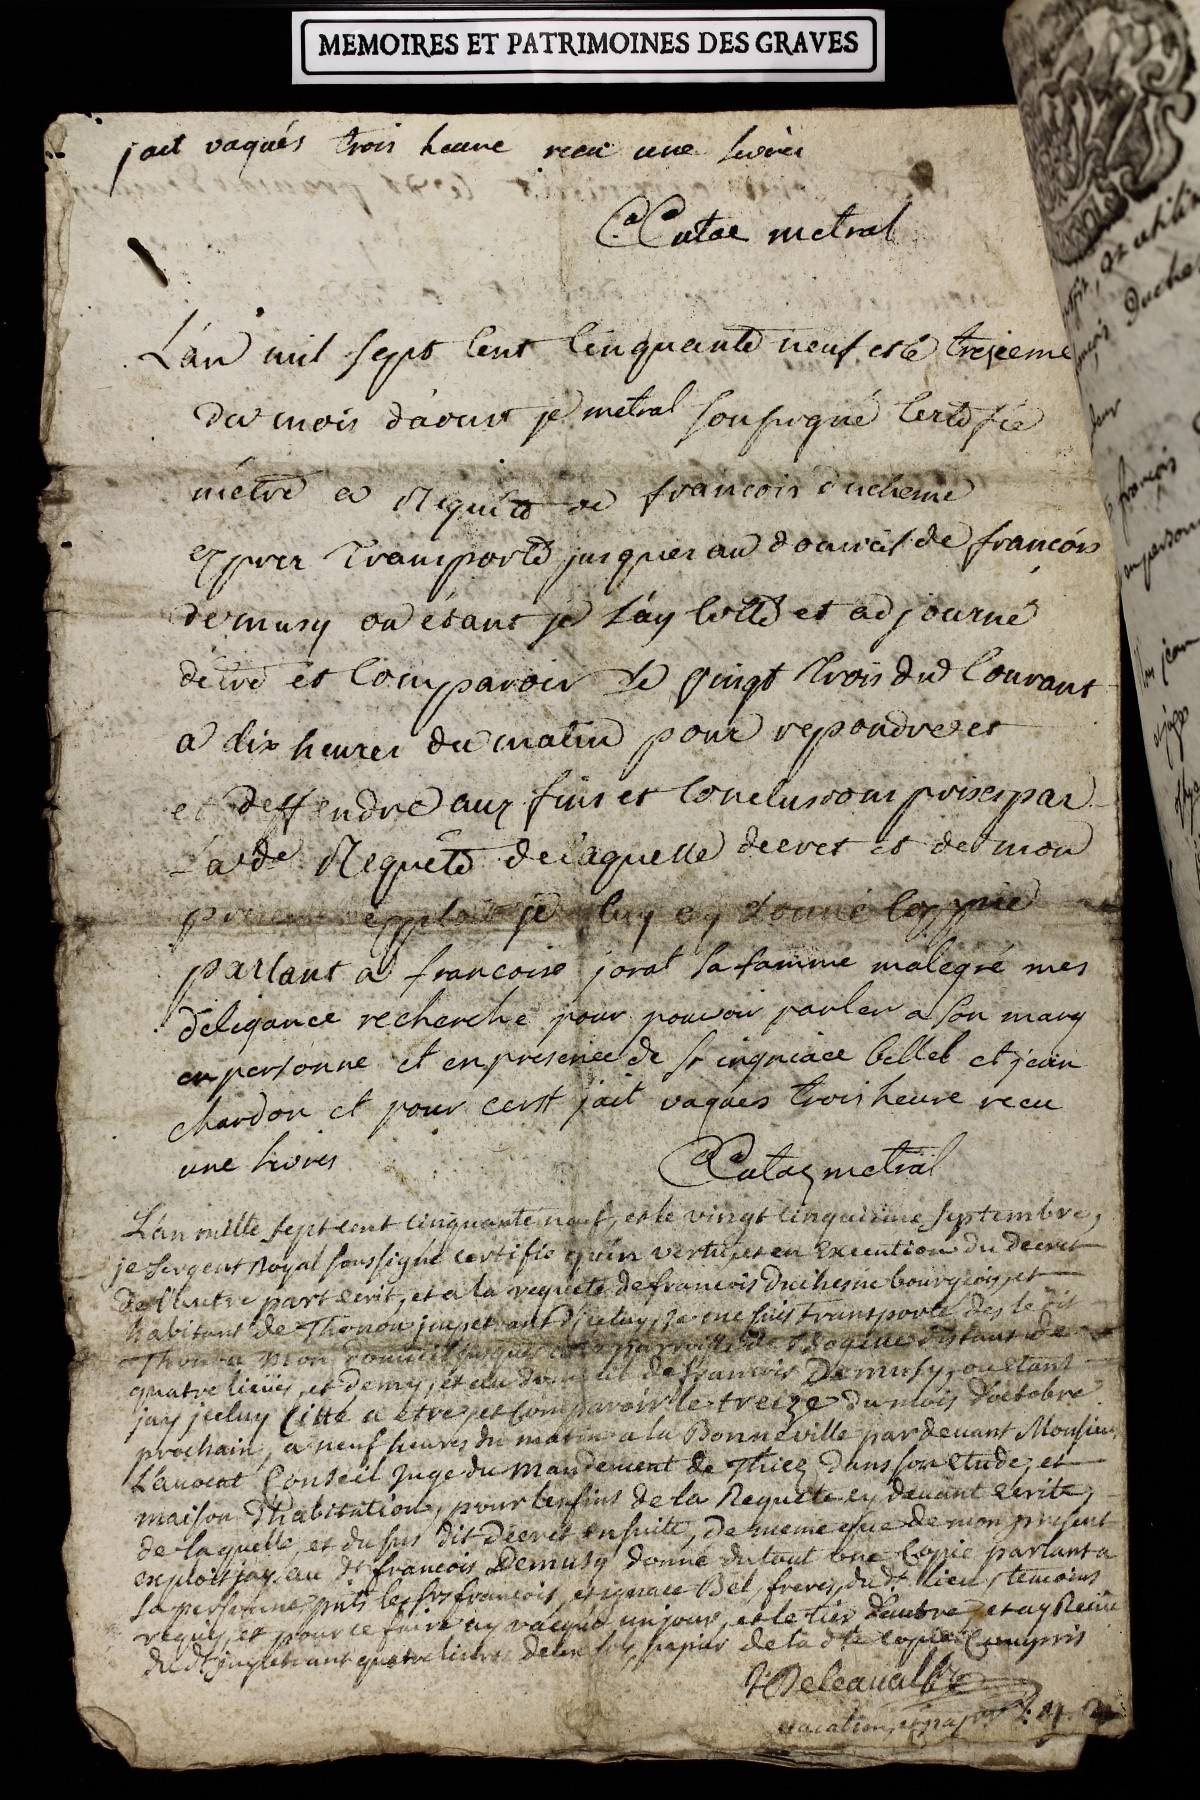 MEMOIRES ET PATRIMOINES DES GRAVES
jait vaqués trois heure recu une livres
Catae metral
L'an mil sept cent cinquante neuf et le trejieme
du mois d'aoust je metral soussigné certifie
métre a Requete de francois duchene
exprer transporté jusques au domicil de francois
demusy ou étant je l'ay citté et adjourné
détre et comparoir le vingt trois du courant
a dix heures du matin pour repondre et
et deffendre aux fins et conclusions prises par
la de Requete de laquelle decret et de mon
present exploit je luy ay donné coppie
parlant a francoise jorat sa famme malegré mes
deligance recherche pour pouvoir parler a son mary
en personne et en presence de sr ingniace bellet et jean
chardon et pour cerst jait vaques trois heure recu
une livres
Catae metral
L'an mille sept cent cinquante neuf, et le vingt cinquieme septembre,
je sergent Royal soussigné certifie qu'en vertu, et en Execution du decret
de l'autre part ecrit, et a la requete de francois Duchesne bourgeois, et
habitant de Thonon, impetrant d'iceluy, je me suis transporté des le dit
Thonon mon domicil jusques a la parroisse de Bogeve distant de
quatre lieües, et demy, et au domicil de francois Demusy, ou etant
jay jceluy Citté a etre, et comparoir le treize du mois d'octobre
prochain, a neuf heures du matin a la Bonneville pardevant Monsieur
L'avocat Conseil Juge du Mandement de Thiez dans son etude, et
maison d'habitation, pour les fins de la Requete cy devant ecrite,
de laquelle, et du sus dit decret ensuite, de meme que de mon present
exploit jay au dt francois Demusy donné du tout une Copie parlant a
sa personne, pnts les srs francois, et ignace Bel, freres, du dt lieu, temoins
requis, et pour ce faire ay vacqué un jour, et le tier d'autre, et ay Receu
du dt impetrant quatre livres deux sols, papier de la dte copie Compris
Delavual
vacation, et papier